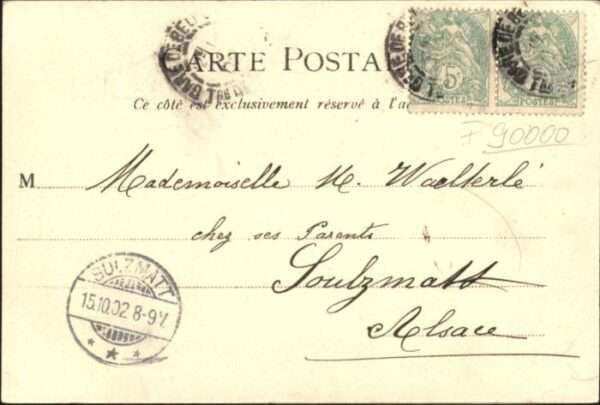 CARTE POSTA
Ce côté est exclusivement réservé à l'a
5c
POSTES
F 90000
M Mademoiselle M. Waelterlé
chez ses Parents
Soulzmatt
Alsace
SULZMATT
15.10.02 8-9V.
GARE DE
GARE DE